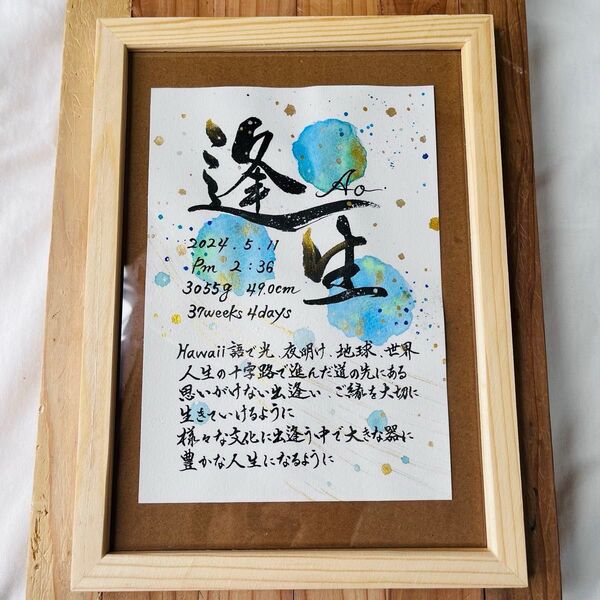 逢生
Ao
2024.5.11
Pm 2:36
3055g 49.0cm
37weeks 4days
Hawaii語で光、夜明け、地球、世界
人生の十字路で進んだ道の先にある
思いがけない出逢い、ご縁を大切に
生きていけるように
様々な文化に出逢う中で大きな器に
豊かな人生になるように